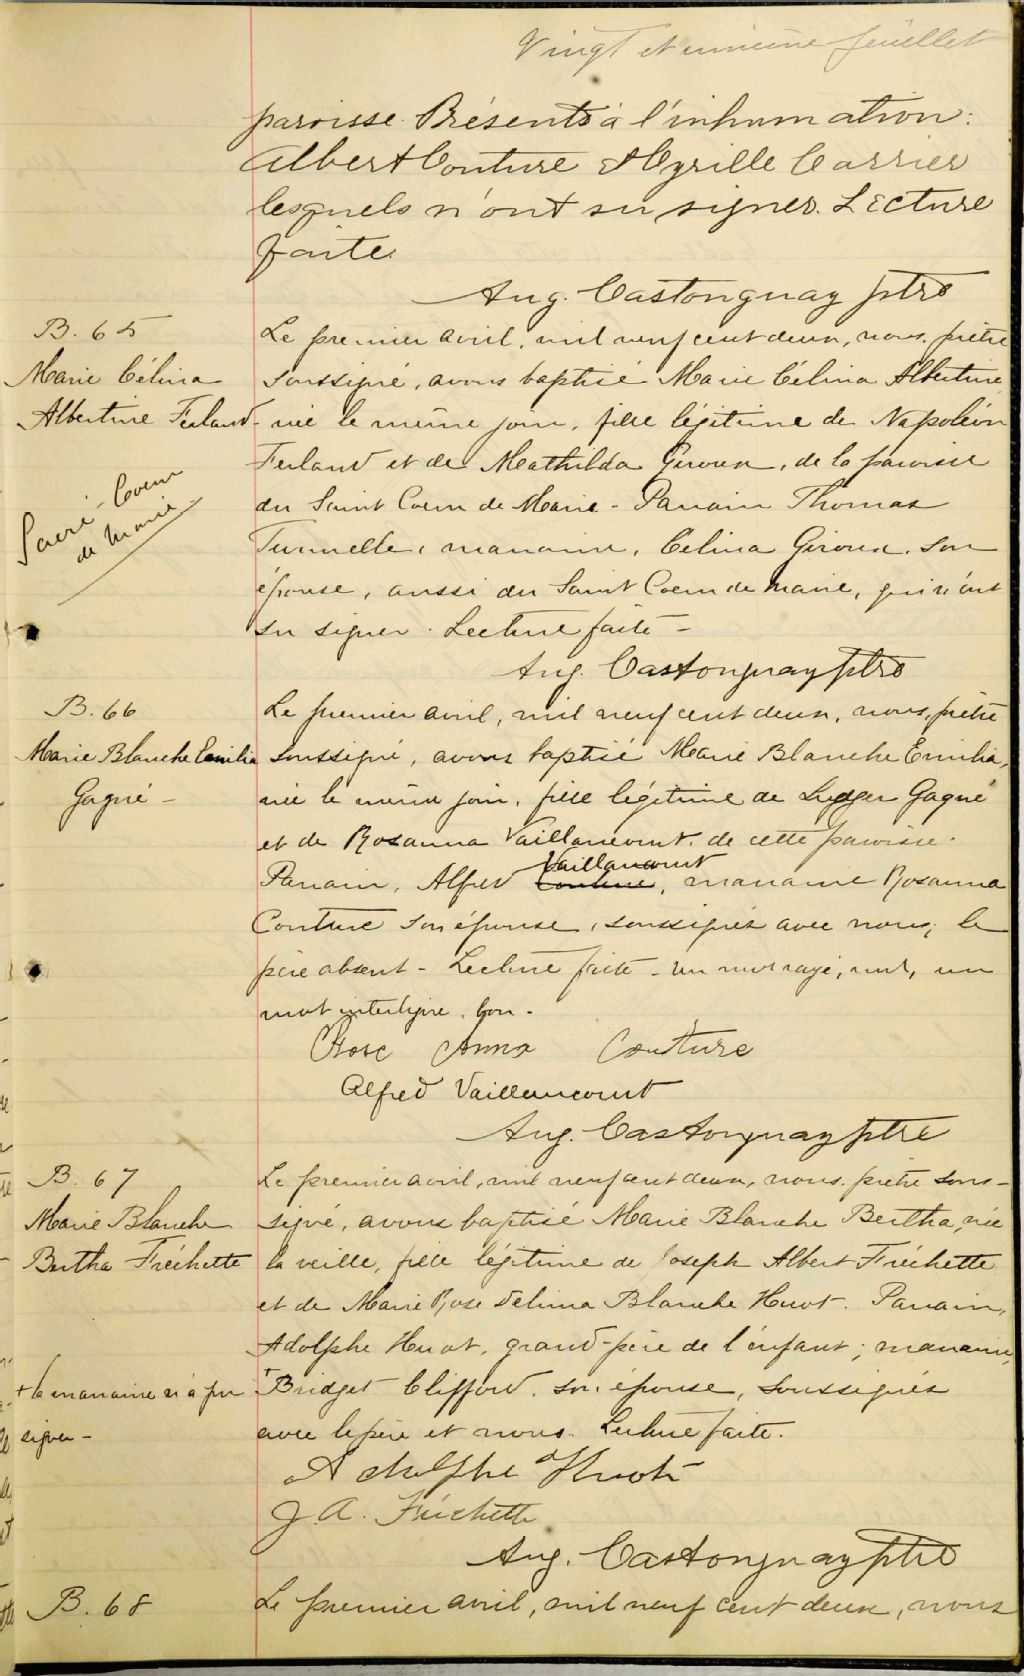 Vingt et unième feuillet
paroisse. Présents à l'inhumation:
Albert Couture & Cyrille Carrier
lesquels n'ont su signer. Lecture
faite.
Aug. Castonguay ptre
B. 65
Marie Célina
Albertine Ferland
Sacré-Coeur
de Marie
Le premier avril, mil neuf cent deux, nous, prêtre
soussigné, avons baptisé Marie Célina Albertine,
née le même jour, fille légitime de Napoléon
Ferland et de Mathilda Giroux, de la paroisse
du Saint Coeur de Marie - Parrain Thomas
Turmelle, marraine, Célina Giroux, son
épouse, aussi du Saint Coeur de Marie, qui n'ont
su signer. Lecture faite -
Aug. Castonguay ptre
B. 66
Marie Blanche Emilia
Gagné -
Le premier avril, mil neuf cent deux, nous, prêtre
soussigné, avons baptisé Marie Blanche Emilia,
née le même jour, fille légitime de Ludger Gagné
et de Rosanna Vaillancourt, de cette paroisse.
Vaillancourt
Parrain, Alfred Couture, marraine Rosanna
Couture son épouse, soussignés avec nous; le
père absent - Lecture faite - un mot rayé, nul, un
mot interligne, bon -
Rose Anna Couture
Alfred Vaillancourt
Aug. Castonguay ptre
B. 67
Marie Blanche
Bertha Fréchette
Le premier avril, mil neuf cent deux, nous, prêtre sous-
signé, avons baptisé Marie Blanche Bertha, née
la veille, fille légitime de Joseph Albert Fréchette
et de Marie Rose Delima Blanche Huot. Parrain,
Adolphe Huot, grand-père de l'enfant; marraine,
+ Bridget Clifford, son épouse, soussignés
avec le père et nous. Lecture faite.
+ la marraine n'a pu
signer -
Adolphe Huot
J. A. Fréchette
Aug. Castonguay ptre
B. 68
Le premier avril, mil neuf cent deux, nous